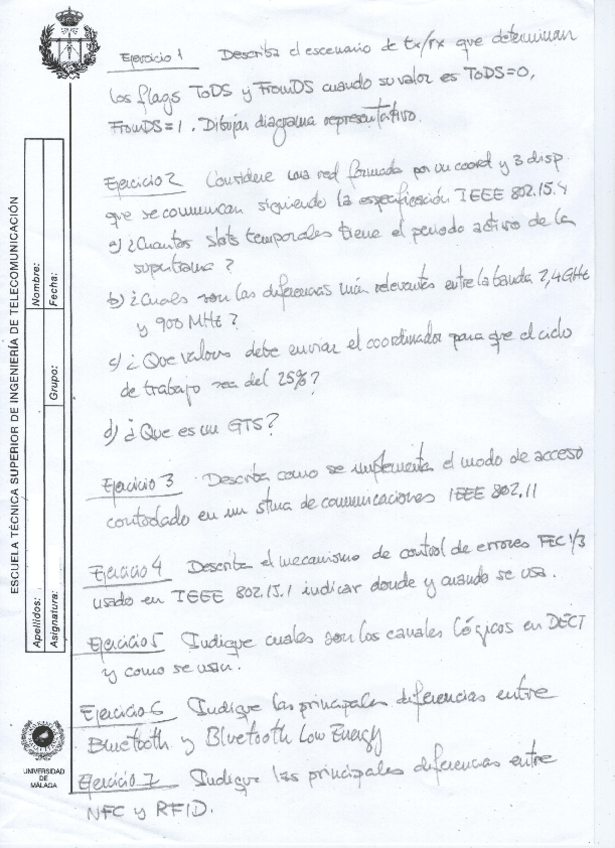 Ejercicio 1 Describa el escenario de tx/rx que determinan
los flags ToDS y FromDS cuando su valor es ToDS=0,
FromDS=1. Dibujar diagrama representativo.
Ejercicio 2 Considere una red formada por un coord y 3 disp.
que se comunican siguiendo la especificación IEEE 802.15.4
a) ¿Cuantos slots temporales tiene el periodo activo de la
supertrama?
b) ¿Cuales son las diferencias más relevantes entre la banda 2,4GHz
y 900 MHz?
c) ¿Que valores debe enviar el coordinador para que el ciclo
de trabajo sea del 25%?
d) ¿Que es un GTS?
Ejercicio 3 Describa como se implementa el modo de acceso
controlado en un stma de comunicaciones IEEE 802.11
Ejercicio 4 Describa el mecanismo de control de errores FEC 1/3
usado en IEEE 802.15.1 indicar donde y cuando se usa.
Ejercicio 5 Indique cuales son los canales lógicos en DECT
y como se usan.
Ejercicio 6 Indique las principales diferencias entre
Bluetooth y Bluetooth Low Energy
Ejercicio 7 Indique las principales diferencias entre
NFC y RFID.
ESCUELA TÉCNICA SUPERIOR DE INGENIERÍA DE TELECOMUNICACIÓN
Apellidos: Nombre:
Asignatura: Grupo: Fecha:
UNIVERSIDAD
DE
MÁLAGA